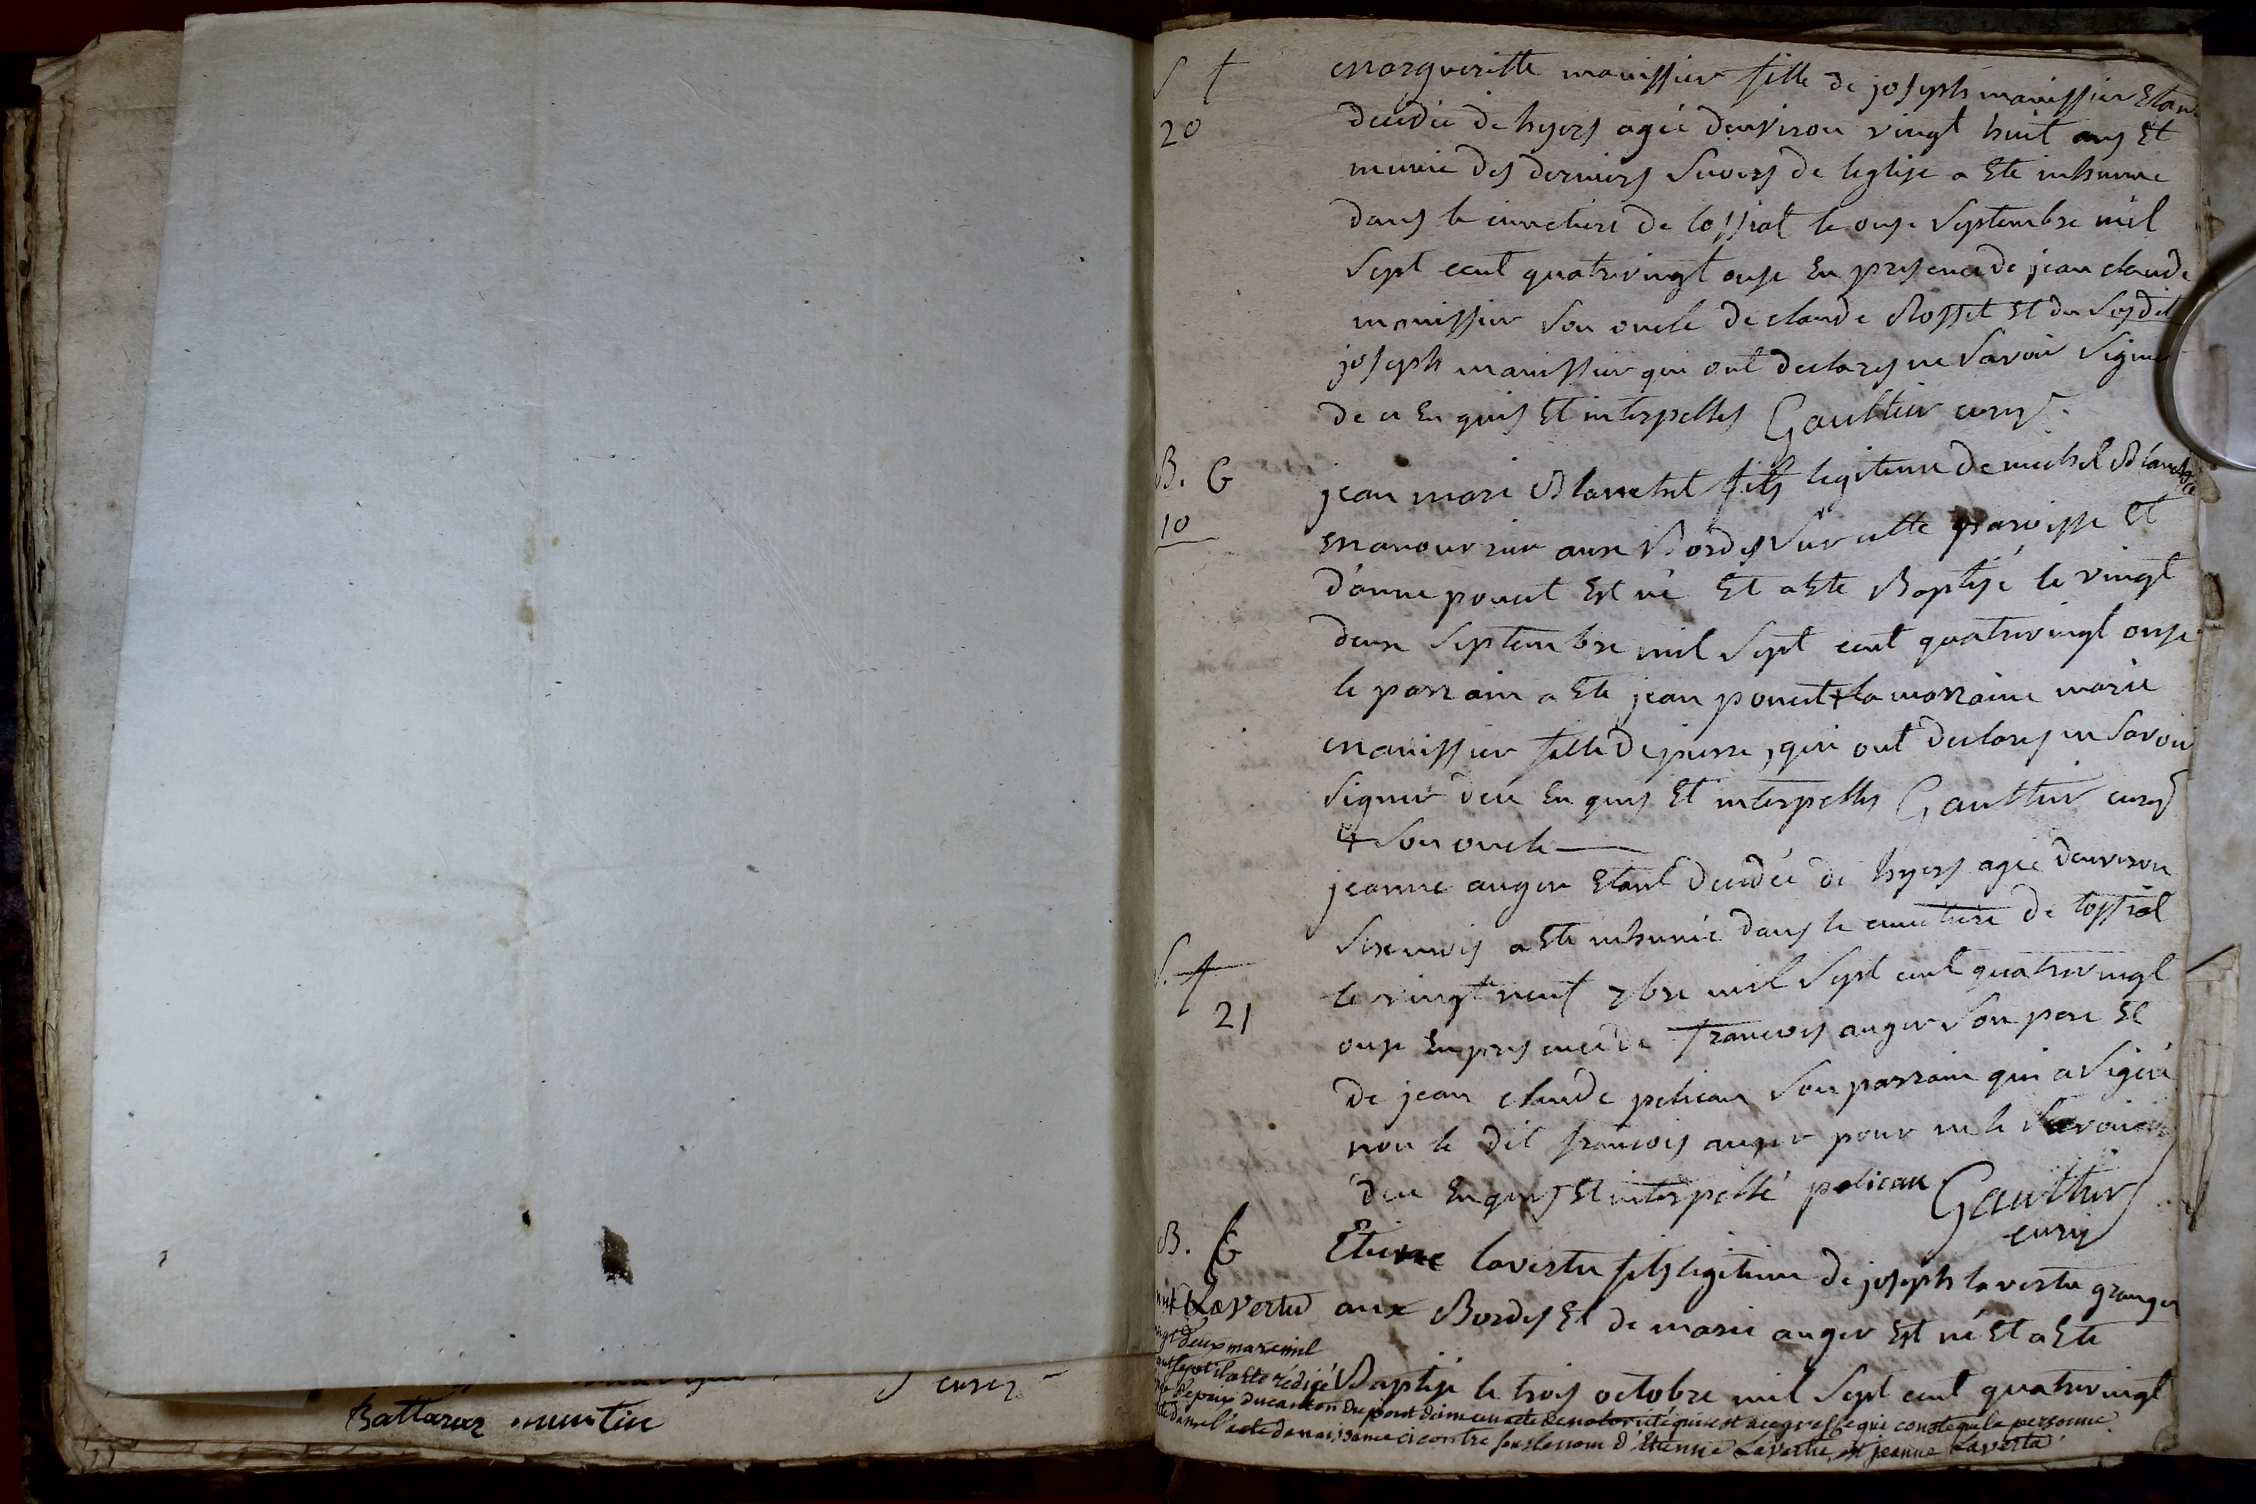 curez
Battazar
S †
20
margueritte manissier fille de joseph manissier Etant
decedée de hyers agée denviron vingt huit ans Et
munie des derniers secours de leglise a Eté inhumée
dans le cimetiere de lossiat le onze Septembre mil
Sept cent quatrevingt onze En presence de jean claude
manissier son oncle de claude Rosset Et du susdit
joseph manissier qui ont declarés ne Savoir Signer
de ce Enquis Et interpellés Gaulthier curez
B. G
10
jean marie Blanchet fils legitime de michel Blanchet
manouvrier aux Bordes sur cette paroisse Et
d'anne poncet Est né Et a Eté Baptisé le vingt
deux Septembre mil Sept cent quatrevingt onze
le parrain a Eté jean poncet + la marraine marie
manissier fille de pierre, qui ont declarés ne Savoir
Signer de ce Enquis Et interpellés Gaulthier curez
+ son oncle
jeanne auger Etant decedée de hyers agée denviron
S. †
21
Six mois a Eté inhumée dans le cimetiere de lossiat
le vingt neuf 7bre mil Sept cent quatrevingt
onze En presence de francois auger Son pere Et
de jean claude pelican Son parrain qui a Signé
non le dit francois auger pour ne le Savoir
de ce Enquis Et interpellé pelican Gaulthier
curez
B. G
Etienne lavertu fils legitime de joseph lavertu granger
Lavertu
aux Bordes Et de marie auger Est né Et a Eté
deux mars mil
Baptisé le trois octobre mil Sept cent quatrevingt
sept il a été rédigé
de paix du canton du pont d'ain un acte de notoriété qui est au greffe qui conste que la personne
dans l'acte de naissance ci contre sous le nom d'Etienne Lavertu, est jeanne Lavertu